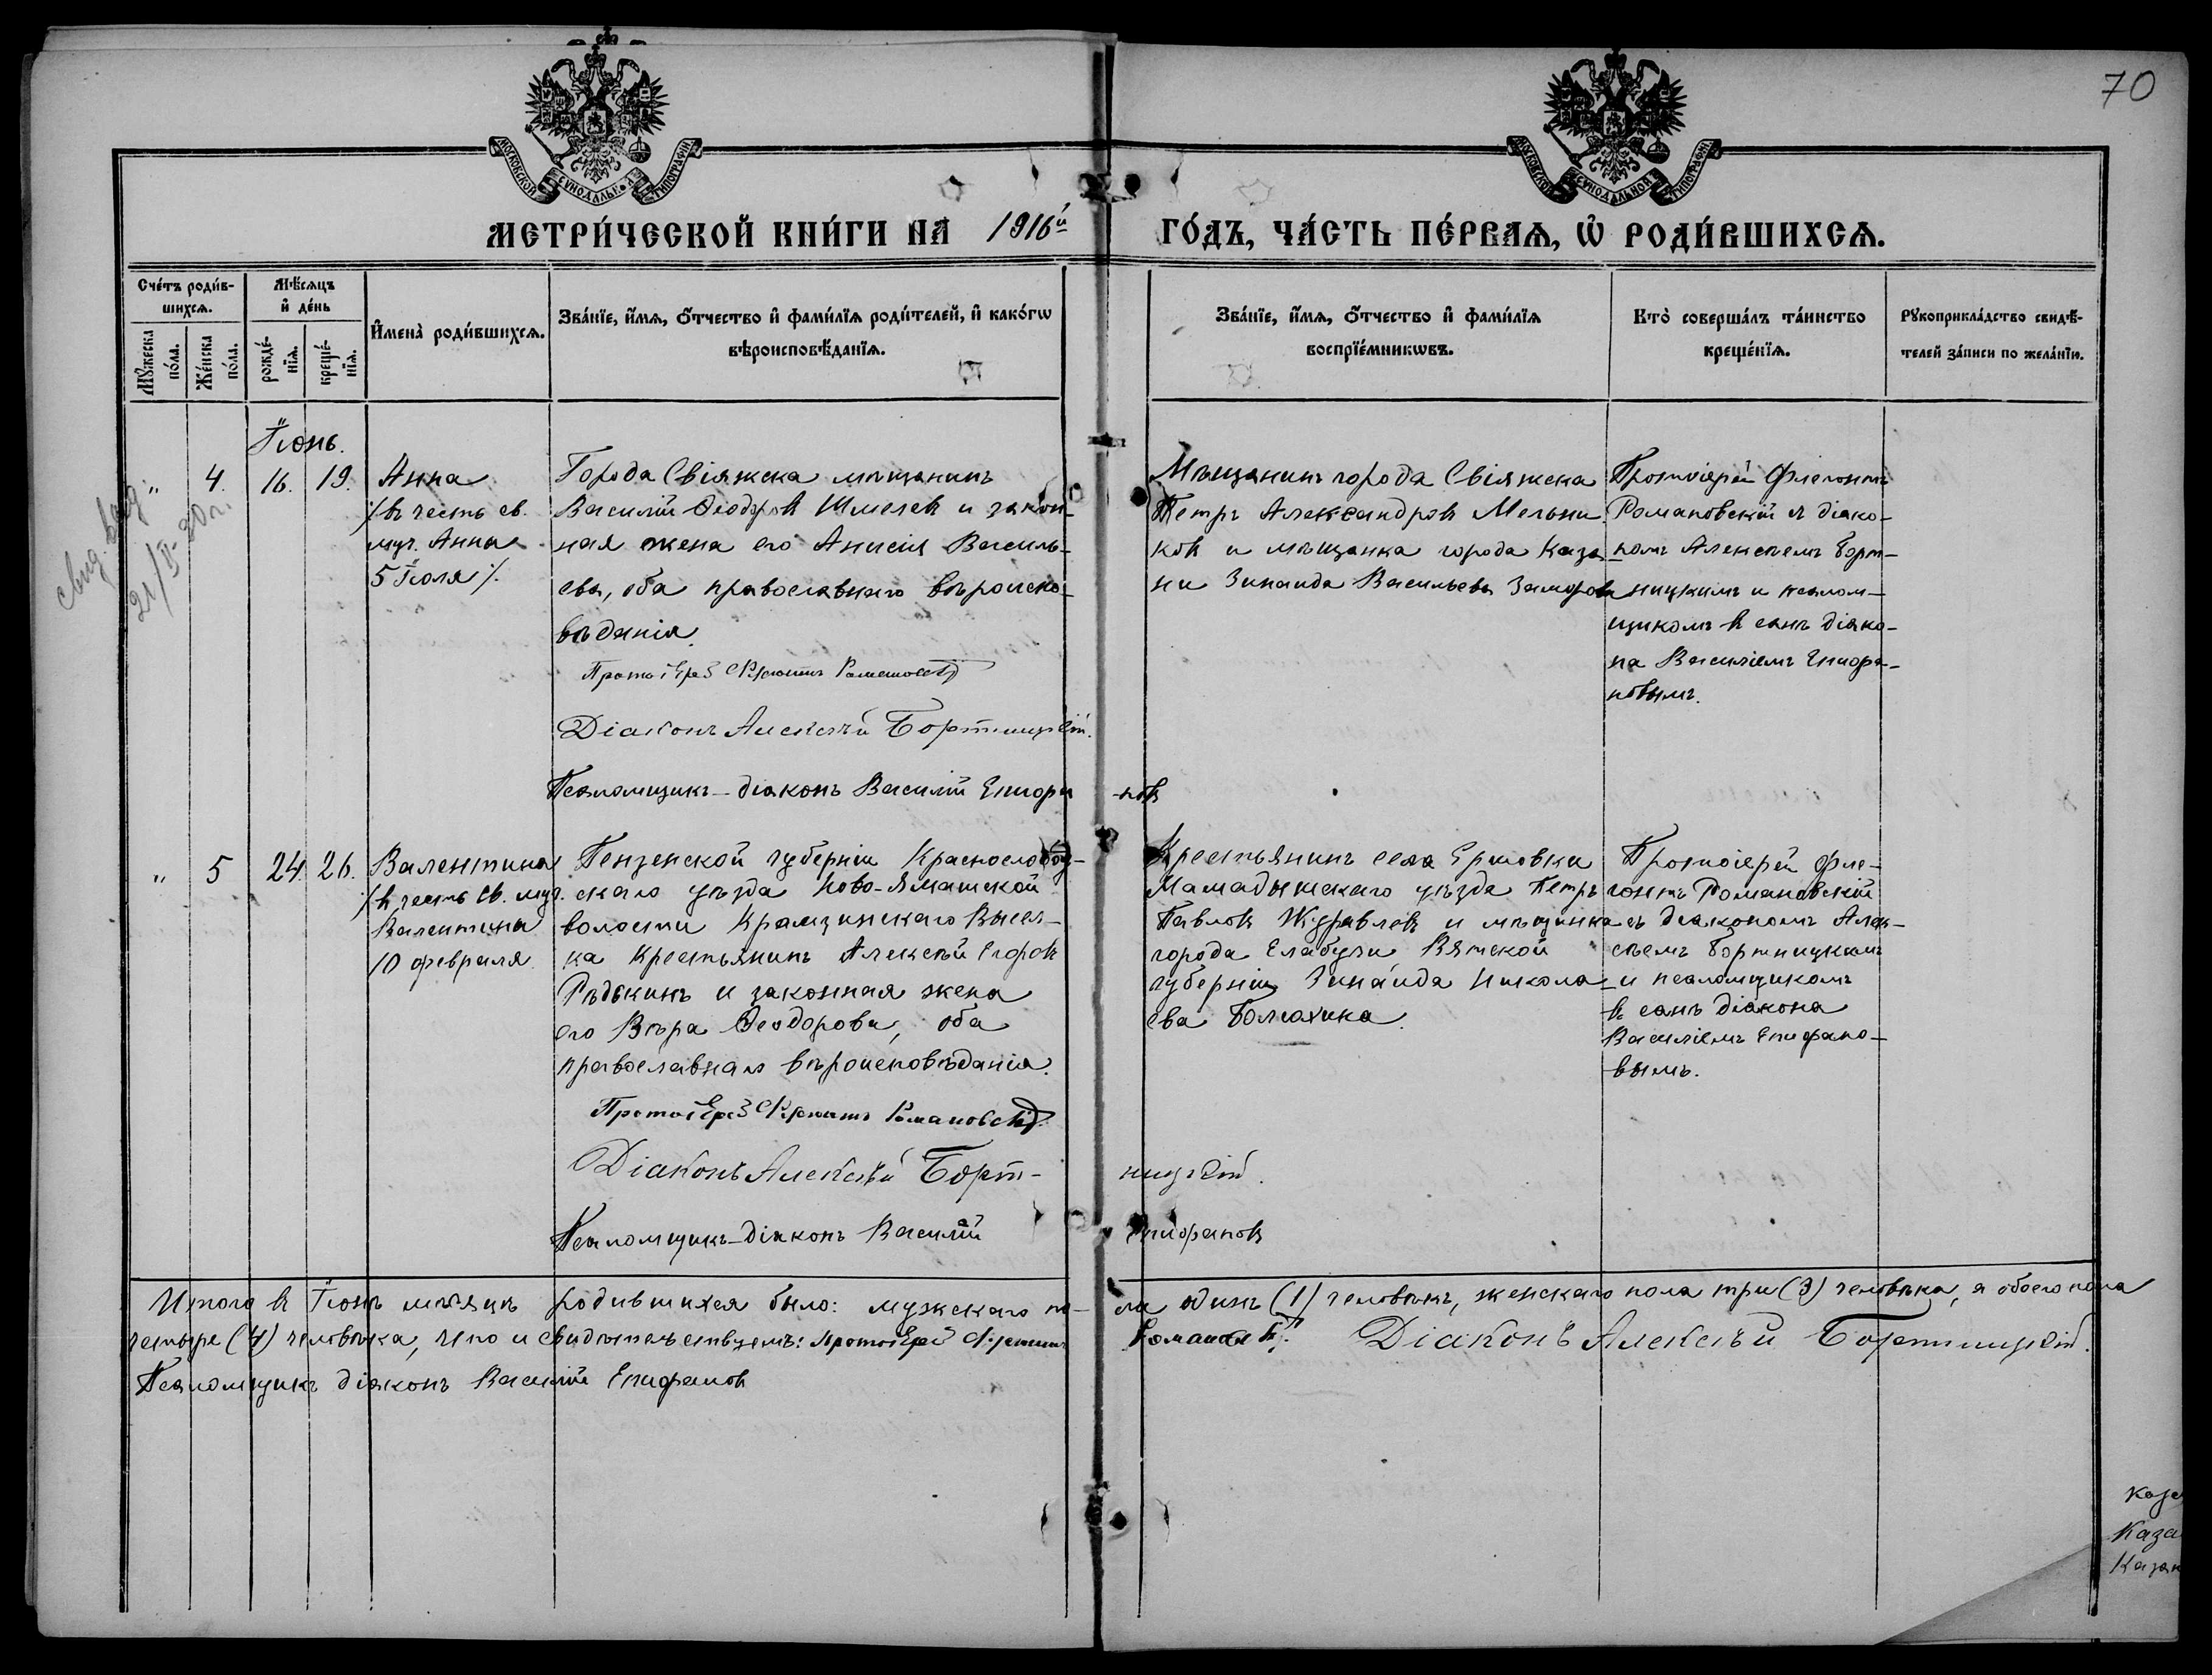 70
МОСКОВСКОЙ СѴНОДАЛЬНОЙ ТИПОГРАФІИ
МОСКОВСКОЙ СѴНОДАЛЬНОЙ ТИПОГРАФІИ
МЕТРИ́ЧЕСКОЙ КНИ́ГИ НА 1916й ГО́ДЪ, ЧА́СТЬ ПЕ́РВАѦ, Ѡ҆ РОДИ́ВШИХСѦ.
Сче́тъ роди́в-
шихсѧ.
Мꙋ́жеска
по́ла.
Же́нска
по́ла.
Мѣ́сѧцъ
и҆ де́нь
рожде́-
нїѧ.
креще́-
нїѧ.
И҆мена̀ роди́вшихсѧ.
Зва́нїе, и҆́мѧ, ѻ҆́тчество и҆ фами́лїѧ роди́телей, и҆ како́гѡ
вѣроисповѣ́данїѧ.
Зва́нїе, и҆́мѧ, ѻ҆́тчество и҆ фами́лїѧ
воспрїе́мникѡвъ.
Кто̀ соверша́лъ та́инство
креще́нїѧ.
Рꙋкоприкла́дство свидѣ́-
телей за́писи по жела́нїю.
Іюнь.
" 4. 16. 19.
Анна
/въ честь св.
муч. Анны
5 Іюля/.
Города Свіяжска мѣщанинъ
Василій Ѳеодоровъ Шмелевъ и закон-
ная жена его Анисія Василь-
ева, оба православнаго вѣроиспо-
вѣданія.
Протоіерей Флегонтъ Романовскій
Діаконъ Алексѣй Бортницкій.
Псаломщикъ-діаконъ Василій Епифа-
новъ
Мѣщанинъ города Свіяжска
Петръ Александровъ Мельни-
ковъ и мѣщанка города Каза-
ни Зинаида Васильева
Протоіерей Флегонтъ
Романовскій съ діако-
номъ Алексѣемъ Борт-
ницкимъ и псалом-
щикомъ въ санѣ діако-
на Василіемъ Епифа-
новымъ.
свид. выд.
" 5 24. 26.
Валентина
/въ честь св. муч.
Валентины
10 февраля
Пензенской губерніи Краснослобод-
скаго уѣзда Ново-Ямашской
волости Крамзинскаго Высел-
ка Крестьянинъ Алексѣй Егоровъ
Рѣдькинъ и законная жена
его Вѣра Ѳеодорова, оба
православнаго вѣроисповѣданія.
Протоіерей Флегонтъ Романовскій
Діаконъ Алексѣй Борт-
ницкій.
Псаломщикъ-діаконъ Василій
Епифановъ
Крестьянинъ села Ершовки
Мамадышскаго уѣзда Петръ
Павловъ Журавлевъ и мѣщанка
города Елабуги Вятской
губерніи Зинаида Никола-
ева Болмахина.
Протоіерей Фле-
гонтъ Романовскій
съ діакономъ Алек-
сѣемъ Бортницкимъ
и псаломщикомъ
въ санѣ діакона
Василіемъ Епифано-
вымъ.
Итого въ Іюнѣ мѣсяцѣ родившихся было: мужескаго по-
ла одинъ (1) человѣкъ, женскаго пола три (3) человѣка, а обоего пола
четыре (4) человѣка, что и свидѣтельствуемъ: Протоіерей Флегонтъ
Романовскій. Діаконъ Алексѣй Бортницкій.
Псаломщикъ діаконъ Василій Епифановъ
Каза
Каза
Казан